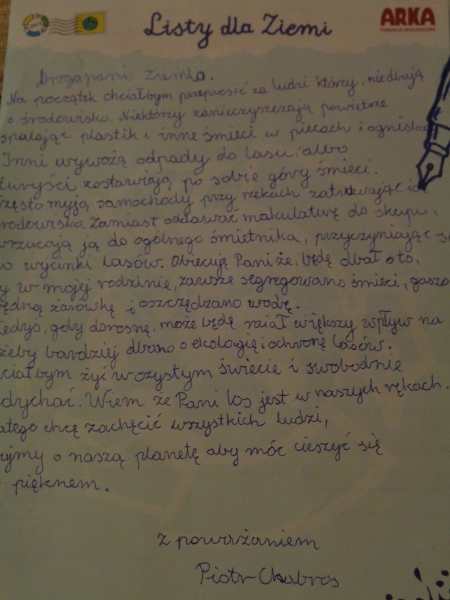 Listy dla Ziemi
ARKA
FUNDACJA EKOLOGICZNA
Droga pani Ziemia.
Na początek chciałbym przeprosić za ludzi którzy nie dbają
o środowisko. Niektórzy zanieczyszczają powietrze
spalając plastik i inne śmieci w piecach i ogniska
Inni wywożą odpady do lasu, albo
turyści zostawiają po sobie góry śmieci.
zęsto myją samochody przy rzekach zatruwając
rodowisko. Zamiast oddawać makulaturę do skupu,
wrzucają ją do ogólnego śmietnika, przyczyniając s
o wycinki lasów. Obiecuję Pani że, będę dbał o to,
y w mojej rodzinie, zawsze segregowano śmieci, gaszo
ędną żarówkę i oszczędzano wodę.
iedyś, gdy dorosnę, może będę miał większy wpływ na
żeby bardziej dbano o ekologię i ochronę lasów.
ciałbym żyć w czystym świecie i swobodnie
dychać. Wiem że Pani los jest w naszych rękach.
latego chcę zachęcić wszystkich ludzi,
jmy o naszą planetę aby móc cieszyć się
pięknem.
z poważaniem
Piotr